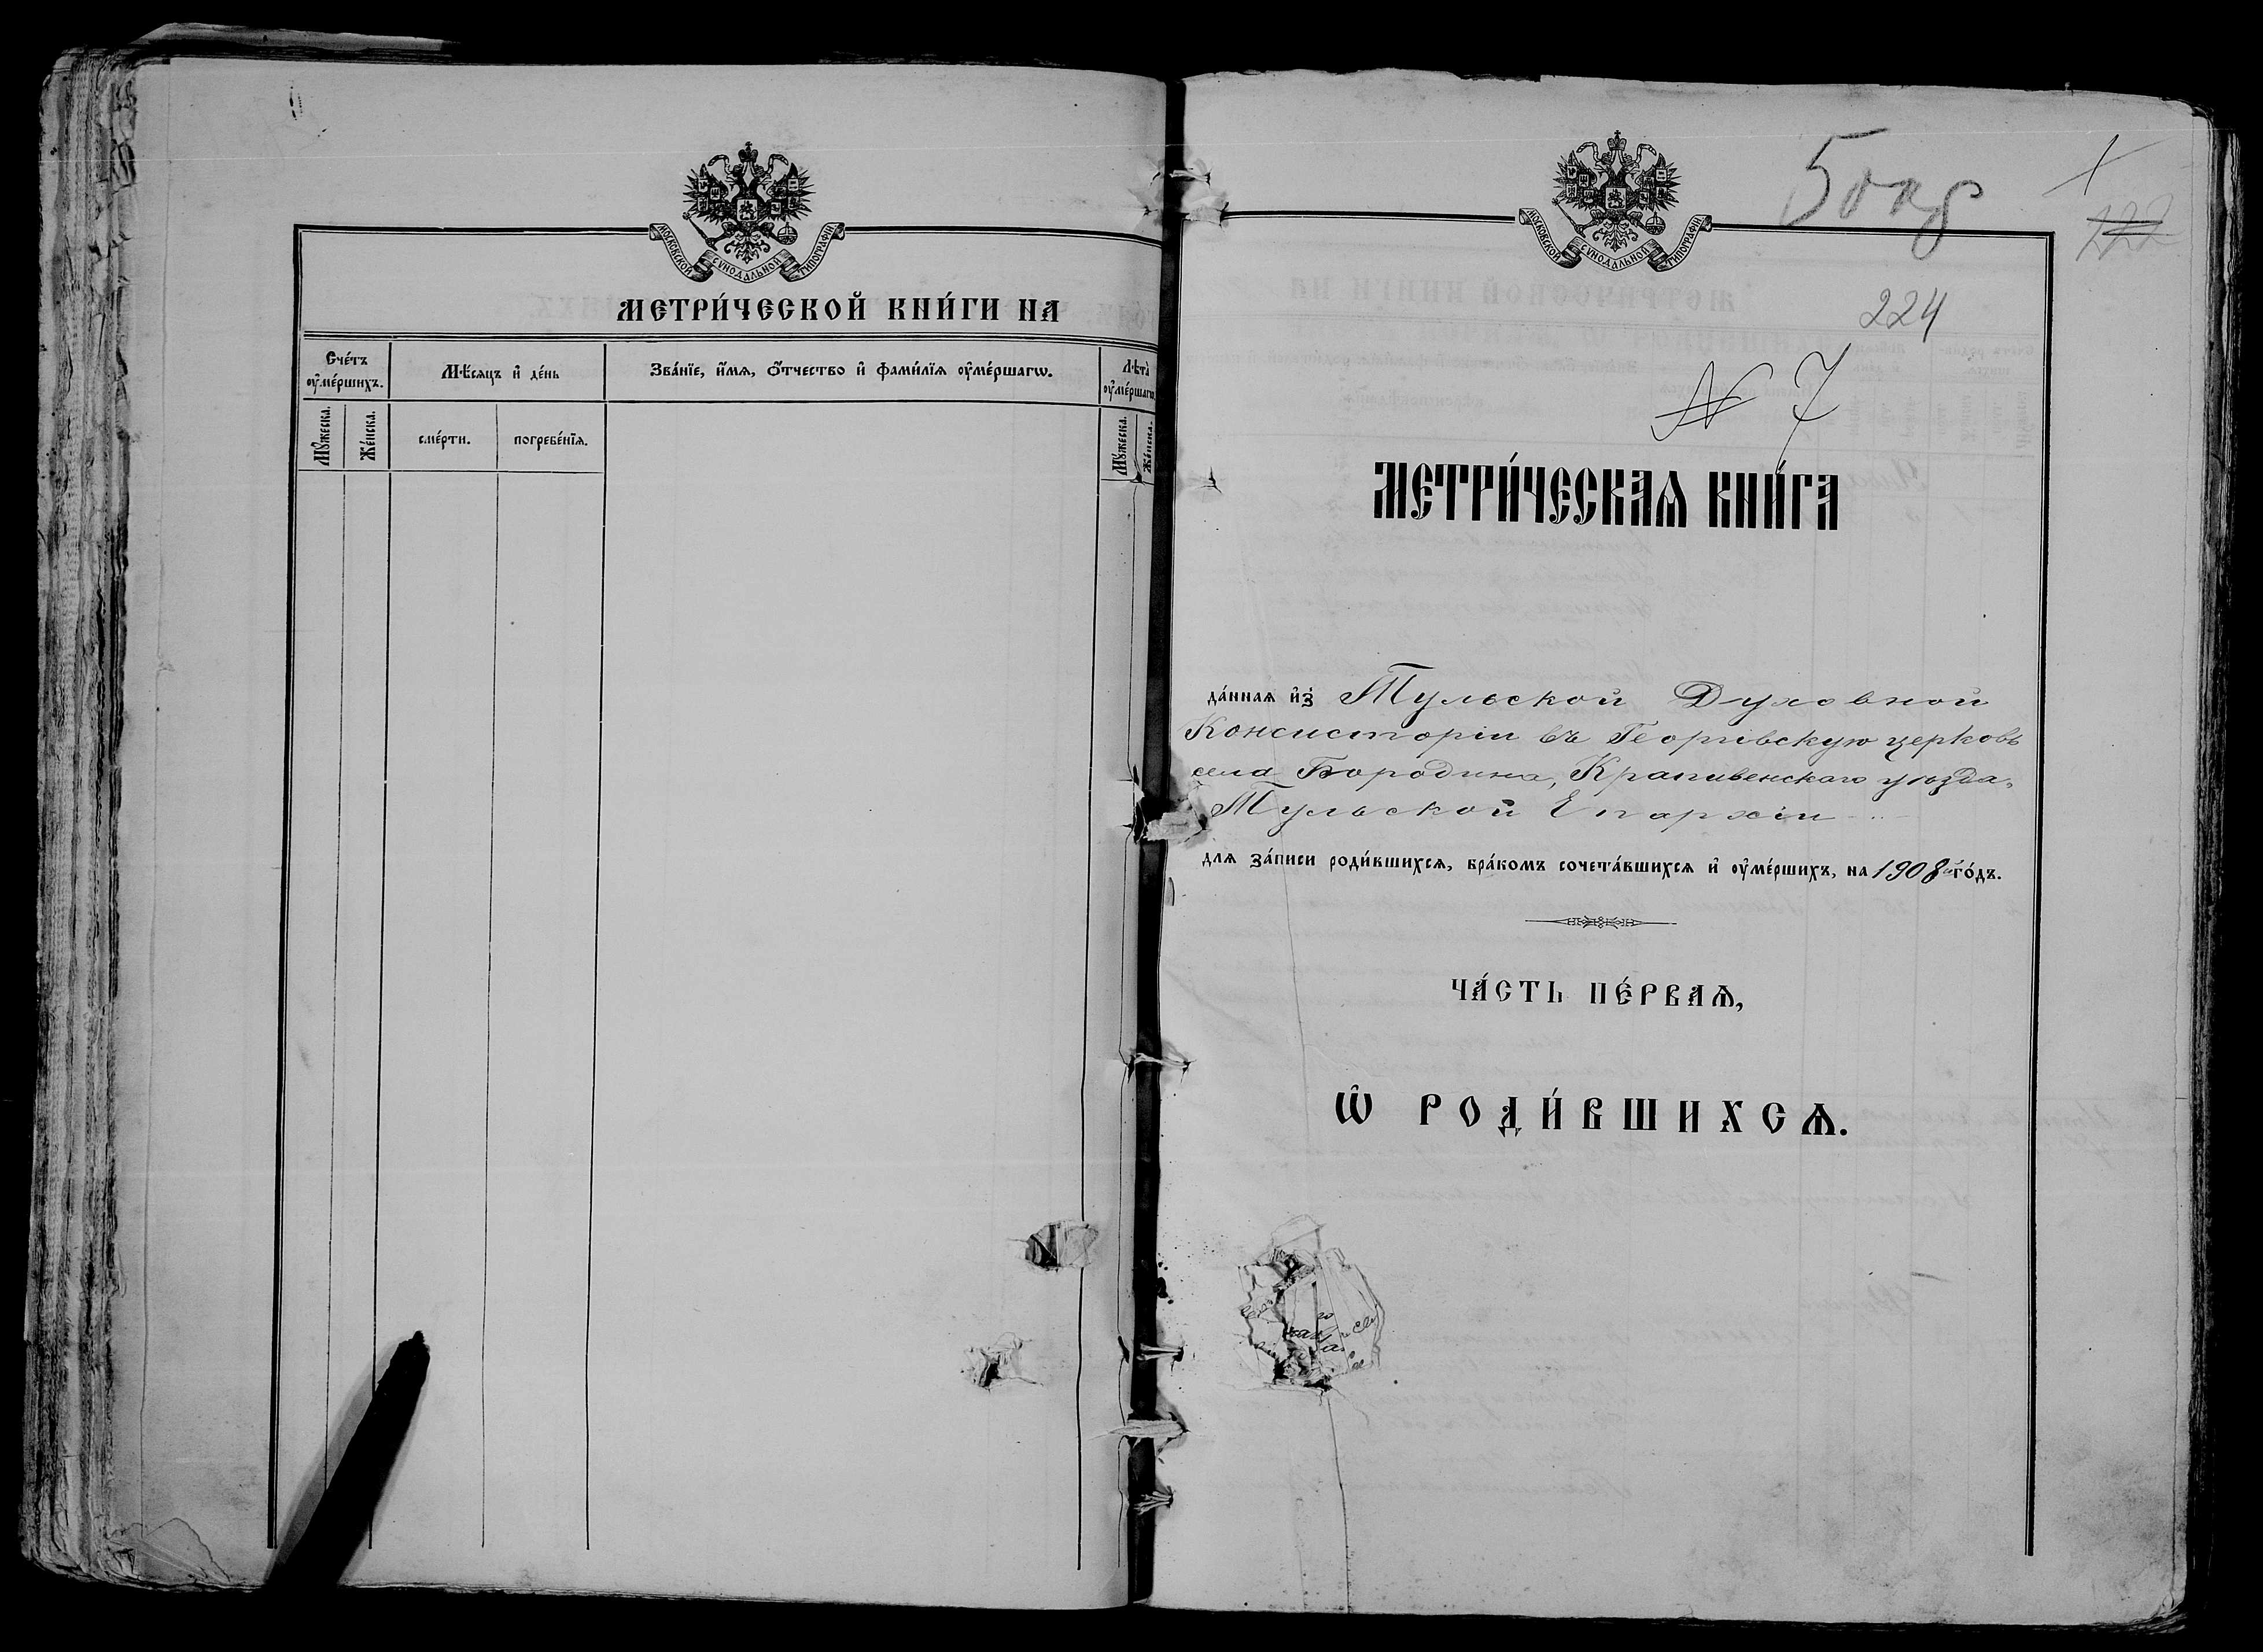 МОСКОВСКОЙ СУНОДАЛЬНОЙ ТИПОГРАФІИ
МЕТРИ́ЧЕСКОЙ КНИ́ГИ НА
Сче́тъ ᲂу҆ме́ршихъ.
Мѣ́сѧцъ и҆ де́нь
Зва́нїе, и҆́мѧ, ѻ҆́тчество и҆ фами́лїѧ ᲂу҆ме́ршагѡ.
Лѣта̀ ᲂу҆ме́ршагѡ
Мꙋ́жеска.
Же́нска.
сме́рти.
погребе́нїѧ.
Мꙋ́жеска.
Же́нска.
МОСКОВСКОЙ СУНОДАЛЬНОЙ ТИПОГРАФІИ
1
222
224
№ 7
МЕТРИ́ЧЕСКАѦ КНИ́ГА
да́ннаѧ и҆з̾ Тульской Духовной
Консисторіи въ Георгіевскую церковь
села Бородина, Крапивенскаго уѣзда,
Тульской Епархіи
длѧ за́писи роди́вшихсѧ, бра́комъ сочета́вшихсѧ и҆ ᲂу҆ме́ршихъ, на 1908й го́дъ.
ЧА́СТЬ ПЕ́РВАѦ,
Ѡ҆ РОДИ́ВШИХСѦ.